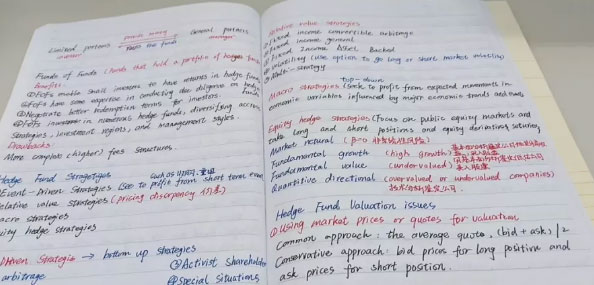 provide money
Limited partners General partners
run the fund
Funds of Funds (Funds that hold a portfolio of hedge funds)
Benefits:
①FoFs enable small investors to have returns in hedge funds
②FoFs have some expertise in conducting due diligence on hedge funds
③Negotiate better redemption terms for investors.
④FoFs investors in numerous hedge funds, diversifying across
strategies, investment regions, and management styles.
Drawbacks:
More complex (higher) fees structures.
Hedge Fund Strategies such as
Event-Driven Strategies to profit from short term event
Relative value strategies (pricing discrepancy
acro strategies
uity hedge strategies
Driven Strategies → bottom up strategies
arbitrage ③Activist shareholder
④Special Situations
Relative value strategies
①Fixed income convertible arbitrage
②Fixed income general
③Fixed Income Asset Backed
④Volatility (use option to go long or short market volatility)
⑤Multi-strategy
top-down
Macro strategies (Seek to profit from expected movements in
economic variables influenced by major economic trends and events
Equity hedge strategies (Focus on public equity markets and
take long and short positions and equity derivatives, futures,
Market netural (β=0
Fundamental growth (high growth)
Fundamental value (undervalued)
Quantitive directional (overvalued or undervalued companies)
Hedge Fund Valuation issues
①Using market prices or quotes for valuation
Common approach: the average quote, (bid+ask)/2
Conservative approach: bid prices for long position and
ask prices for short position.